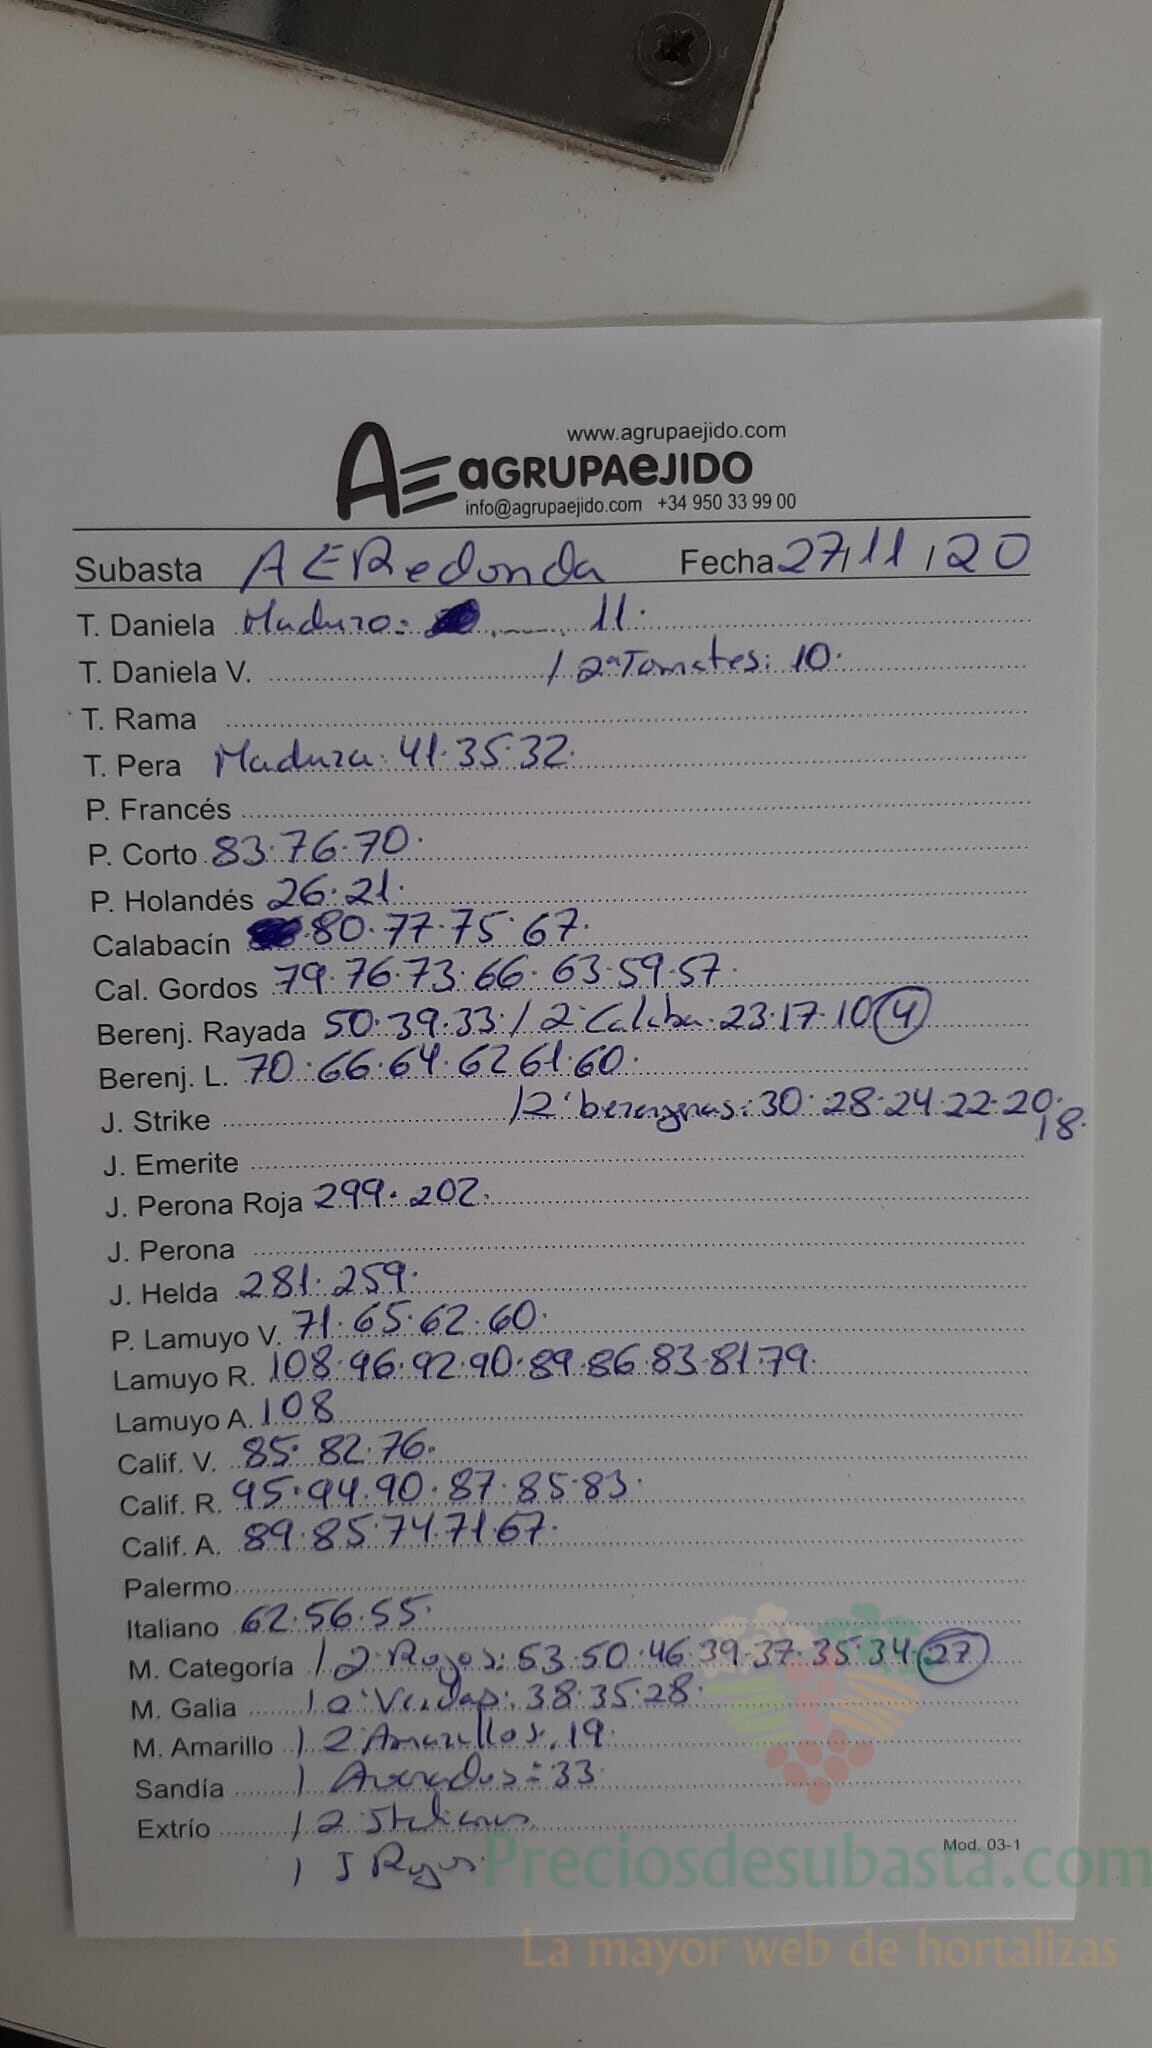 www.agrupaejido.com
AE aGRUPAeJIDO
info@agrupaejido.com +34 950 33 99 00
Subasta AERedonda Fecha 27/11/20
T. Daniela Maduro: 11.
T. Daniela V. / 2ª Tomates: 10.
T. Rama
T. Pera Madura. 41.35.32.
P. Francés
P. Corto 83.76.70.
P. Holandés 26.21.
Calabacín 80.77.75.67.
Cal. Gordos 79.76.73.66.63.59.57.
Berenj. Rayada 50.39.33./ 2ª Calaba. 23.17.10 4
Berenj. L. 70.66.64.62 61.60.
J. Strike /2ª berengenas: 30.28.24.22.20.
18.
J. Emerite
J. Perona Roja 299.202.
J. Perona
J. Helda 281.259.
P. Lamuyo V. 71.65.62.60.
Lamuyo R. 108.96.92.90.89.86.83.81.79.
Lamuyo A. 108
Calif. V. 85.82.76.
Calif. R. 95.94.90.87.85.83.
Calif. A. 89.85.74.71.67.
Palermo
Italiano 62.56.55.
M. Categoría / 2ª Rojos: 53.50.46.39.37.35.34.27
M. Galia / 2ª Verdes: 38.35.28.
M. Amarillo / 2 Amarillos. 19.
Sandía / Asurados = 33.
Extrío / 2 Italianos.
Mod. 03-1
/ J Rojos.
Preciosdesubasta.com
La mayor web de hortalizas